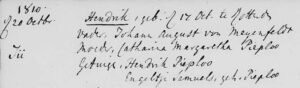 1810.
20 Octbr. Hendrik, geb. 17 Oct. te
vader, Johann August von Meyenfeldt
Moeder, Catharina Margaretha Pieploo
Getuige, Hendrik Pieploo
Engeltje Simuels, geh. Pieploo